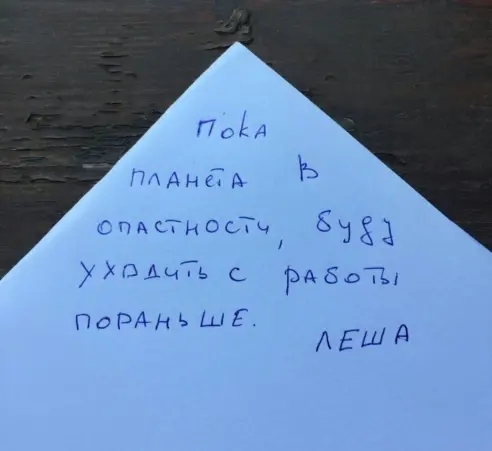 Пока
ПЛАНЕТА В
ОПАСТНОСТИ, БУДУ
УХОДИТЬ С РАБОТЫ
ПОРАНЬШЕ.
ЛЕША